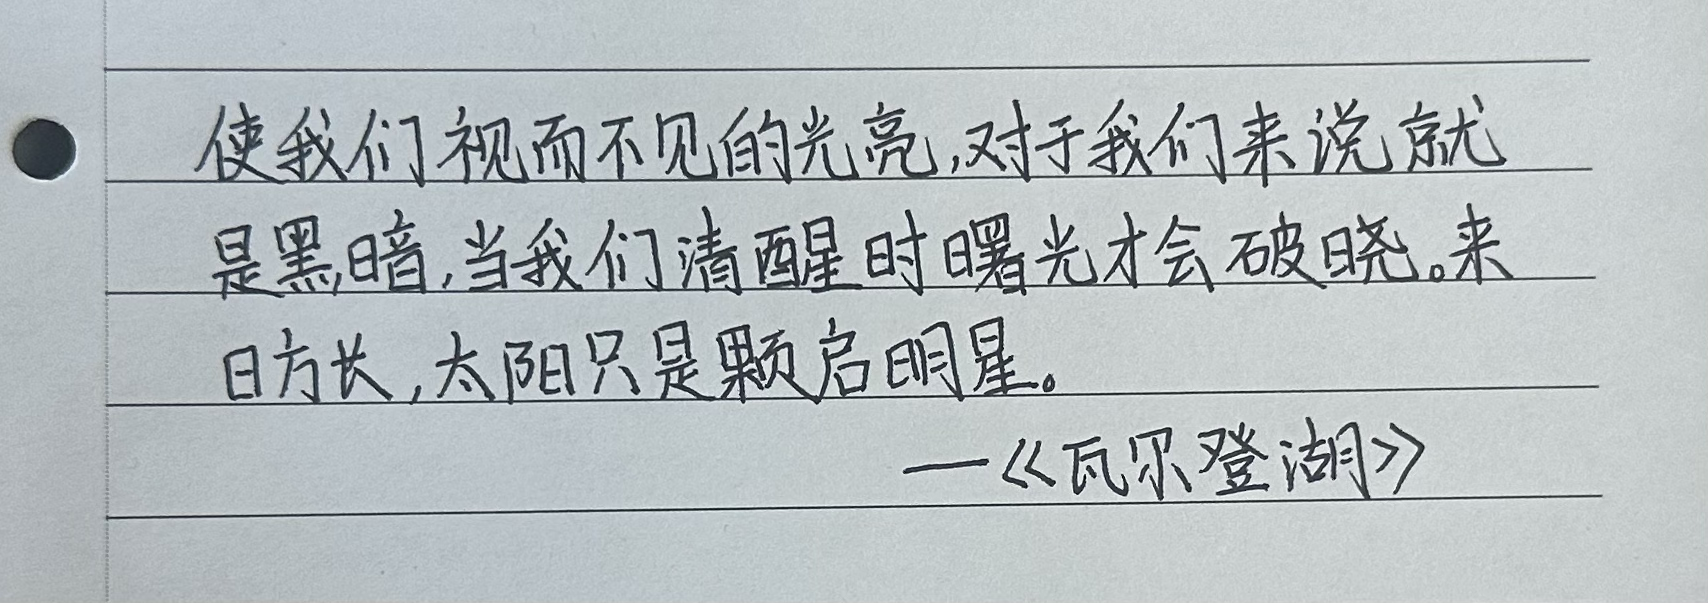 使我们视而不见的光亮,对于我们来说就
是黑暗,当我们清醒时曙光才会破晓。来
日方长,太阳只是颗启明星。
—《瓦尔登湖》